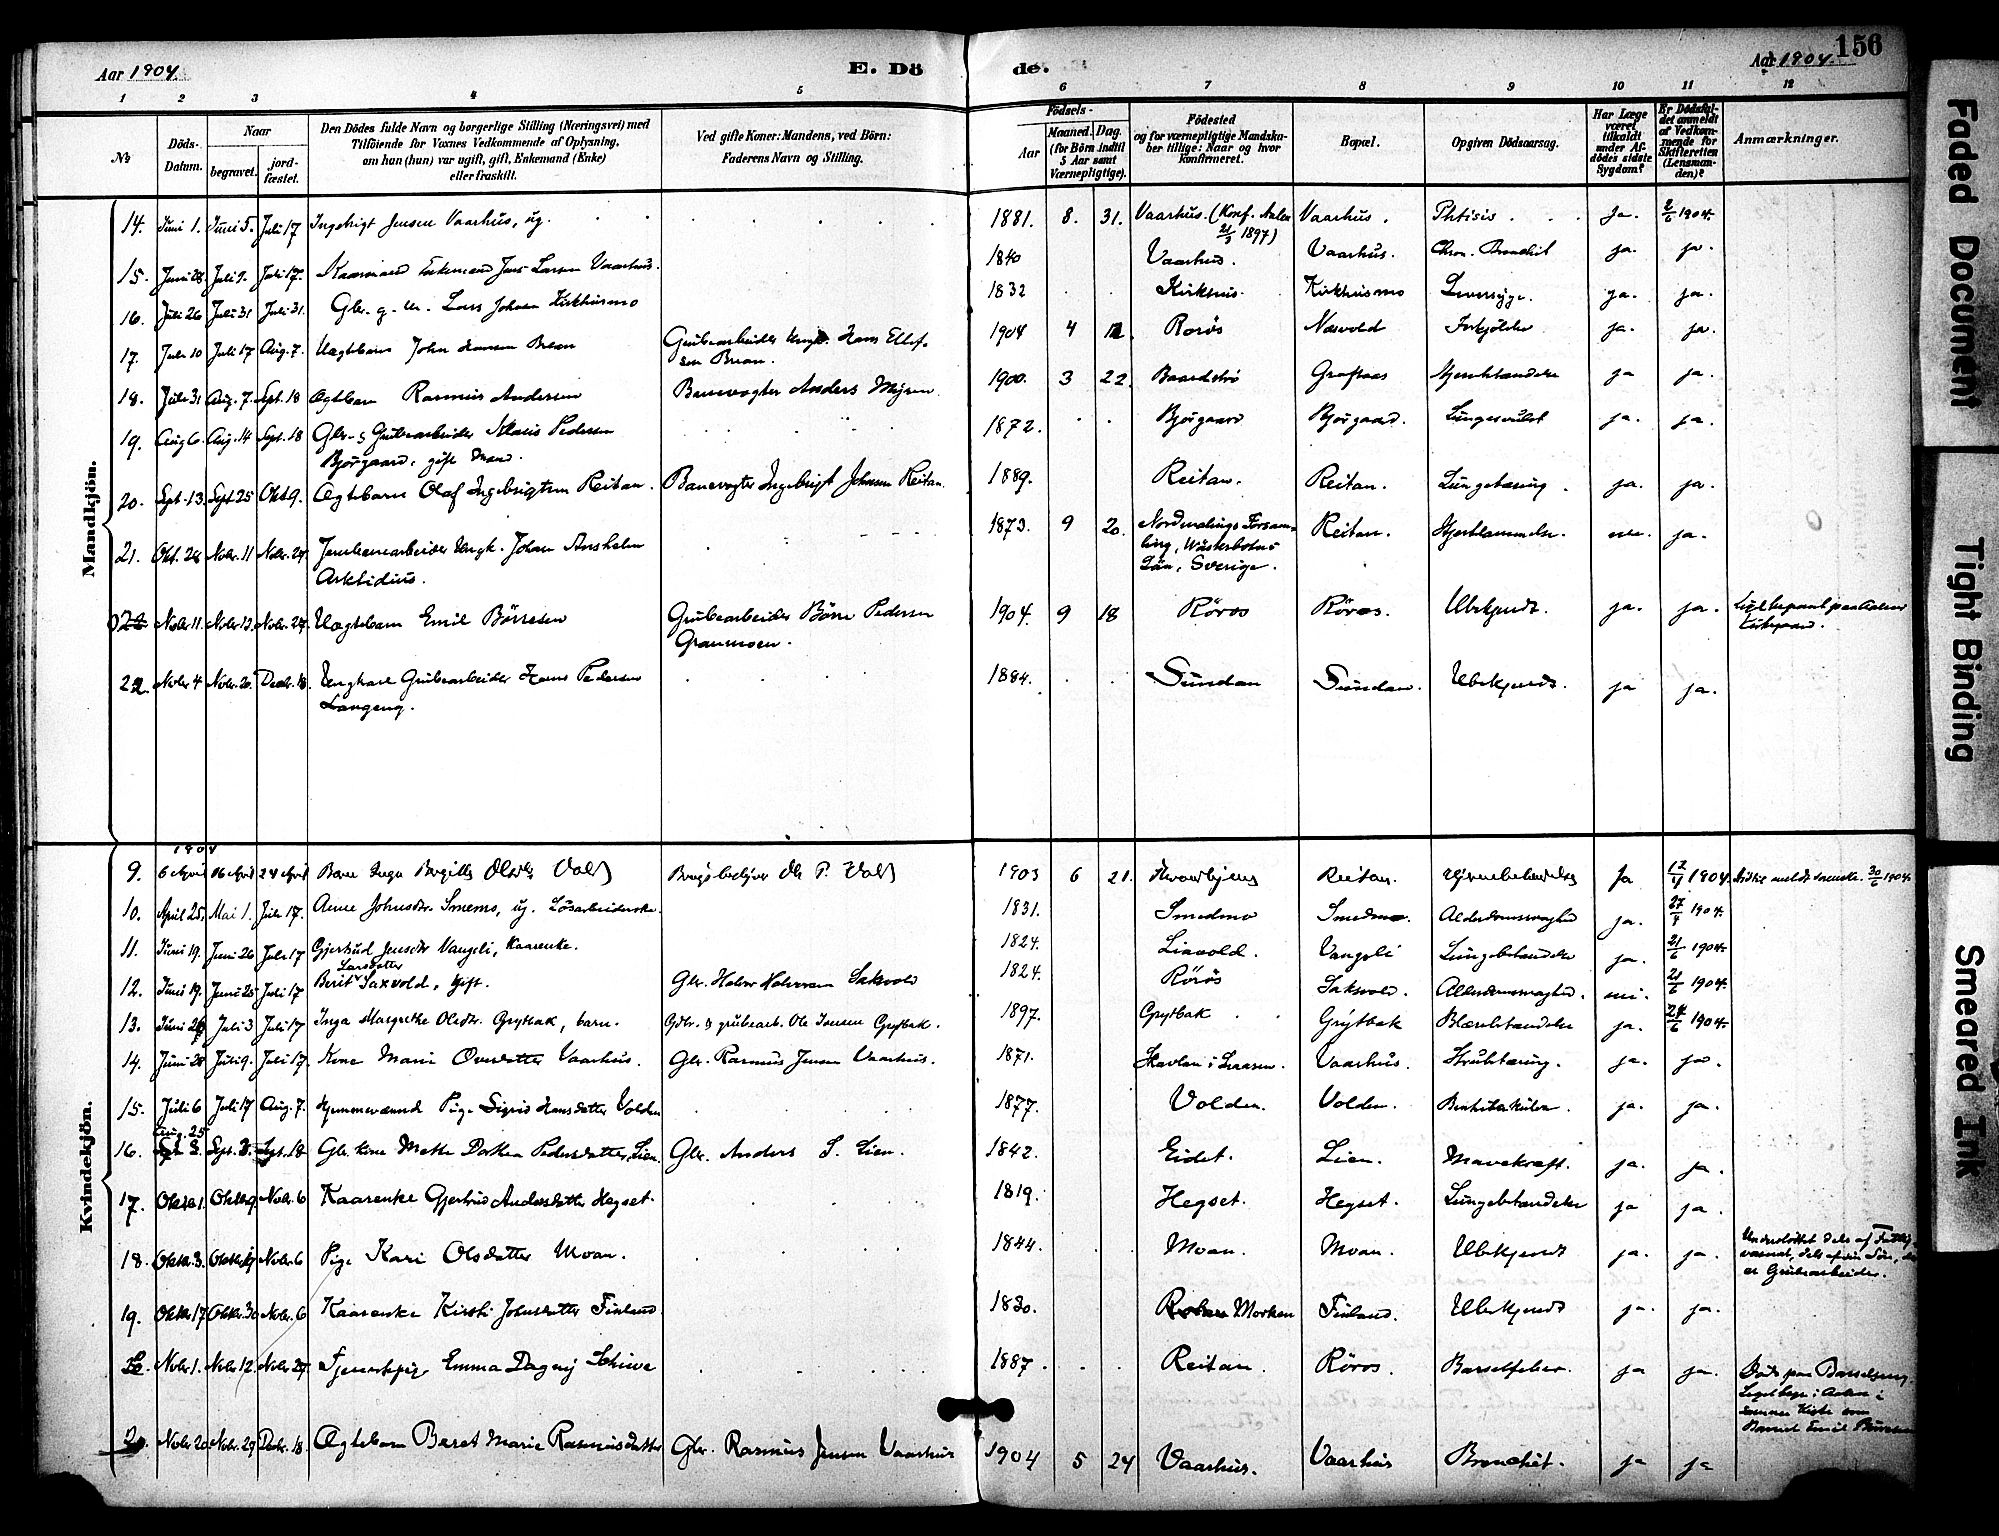 Aar 1904.
E. Dö
de.
Aar 1904.
156
1 2 3 4 5 6 7 8 9 10 11 12
No
Döds-Datum.
Naar
begravet.
jordfæstet.
Den Dödes fulde Navn og borgerlige Stilling (Næringsvei) med
Tilföiende for Voxnes Vedkommende af Oplysning,
om han (hun) var ugift, gift, Enkemand (Enke)
eller fraskilt.
Ved gifte Koner: Mandens, ved Börn:
Faderens Navn og Stilling.
Födsels-
Aar
Maaned. Dag.
(for Börn indtil
5 Aar samt
Værnepligtige).
Födested
og for værnepligtige Mandskaber tillige: Naar og hvor
Konfirmeret.
Bopæl.
Opgiven Dödsaarsag.
Har Læge
været
tilkaldt
under Afdödes sidste
Sygdom?
Er Dödsfaldet anmeldt
af Vedkommende for
Skifteretten
(Lensmanden)?
Anmærkninger.
Mandkjön.
14. Juni 1. Juni 5. Juli 17 Ingebrigt Jensen Vaarhus, ug. 1881. 8. 31. Vaarhus. (Konf. Aalen 21/3 1897) Vaarhus. Phtisis Ja. 2/6 1904.
15. Juni 28 Juli 9. Juli 17. Kaarmand Enkemand Jens Larsen Vaarhus. 1840 Vaarhus. Vaarhus. Chron. Bronchit ja. ja.
16. Juli 26 Juli 31 Juli 31. Gbr. g. m. Lars Johnsen Kirkhusmo 1832 Kirkhus. Kirkhusmo Leversyge. ja. ja.
17. Juli 10 Juli 17 Aug. 7. Uægtebarn John Hansen Brean Grubearbeider Ungk. Hans Ellefsen Brean. 1904 4 12 Rørøs Næsvold Forkjølelse ja. ja.
18. Juli 31 Aug. 7. Sept. 18 Ægtebarn Rasmus Andersen Banevogter Anders Myren 1900. 3 22. Baardstrø Graftaas Hjernebetændelse ja ja.
19. Aug 6 Aug. 14 Sept. 18 Gbr. & Grubearbeider Nils Pedersen
Bjørgaard, gift Mand. 1872. Bjørgaard Bjørgaard. Lungesvulst ja. ja.
20. Sept. 13. Sept 25 Okt 9. Ægtebarn Olaf Ingebrigtsen Reitan. Banevogter Ingebrigt Johnsen Reitan. 1889. Reitan. Reitan. Lungetæring. ja. ja.
21. Okt. 28 Novbr. 11 Novbr. 27 Jernbanearbeider Ungk. Johan Anshelm
Arktidius. 1873. 9 20. Nordmalings Forsamling, Wästerbotns
Län, Sverige. Reitan. Hjertelammelse. nei. ja.
22 Novbr. 11. Novbr. 13. Novbr. 27. Uægtebarn Emil Børresen Grubearbeider Børre Pedersen
Granmoen. 1904. 9 18 Røros Røros. Ubekjendt. ja. ja. Ligl begravet paa Aalens
Kirkegaard.
22. Novbr. 4 Novbr. 20. Decbr. 18. Ungkarl Grubearbeider Hans Pedersen
Langeng. 1884. Sundan Sundan. Ubekjendt. ja ja.
Kvindekjön.
1904
9. 6 April 16 April 24 April Barn Inga Bergitte Olsdtr Vold Brugsbestyrer Ole P. Vold 1903 6 21. Kvernbyens Reitan. Hjernebetændelse Ja 12/4 1904.
10. April 25. Mai 1. Juli 17. Anne Johnsdtr. Smemo, ug. Løsarbeiderske. 1831. Smedmo Smedmo. Alderdomssvaghed ja. 27/4 1904.
11. Juni 19. Juni 26 Juli 17 Gjertrud Jensdtr Vangeli, Kaarenke. 1824. Liavold. Vangeli Lungebetændelse ja. 21/6 1904.
12. Juni 19. Juni 25 Juli 17 Berit Larsdatter Saxvold, Gift. Gbr. Halvor Halvorsen Sakvold 1824. Rørøs Sakvold. Alderdomssvaghed. nei. 21/6 1904.
13. Juni 26 Juli 3 Juli 17 Inga Margrethe Olsdtr. Grytbak, barn. Gdbr. & grubearb. Ole Jonsen Grytbak. 1897. Grytbak Grytbak Blærebetændelse ja. 24/6 1904.
14. Juni 28 Juli 9. Juli 17. Kone Marie Ovesdatter Vaarhus. Gbr. Rasmus Jensen Vaarhus. 1871. Skavlan i Snaasen. Vaarhus. Strubetæring. ja. ja.
15. Juli 6 Juli 17 Aug. 7. Hjemmeværende Pige Sigrid Hansdatter Volden 1877. Volden. Volden. ja. ja.
16. Aug. 25 Sept. 3. Sept. 18 Gbr. kone Mette Dorthea Pedersdatter Lien. Gbr. Anders S. Lien. 1842. Eidet. Lien. Mavekræft. ja. ja.
17. Oktbr 1. Oktbr 9. Novbr. 6 Kaarenke Gjertrud Andersdatter Hegset. 1819. Hegset. Hegset. Lungebetændelse ja ja.
18. Oktbr. 3. Oktbr. 9 Novbr. 6 Pige Kari Olsdatter Moan. 1844. Moan. Moan. Ubekjendt ja. ja. Understøttet dels af Fattigvæsenet, dels af sin Søn, der
er Grubearbeider.
19. Oktbr 17 Oktbr. 30 Novbr. 6 Kaarenke Kirsti Johnsdatter Finland 1830. Morken Finland. Ubekjendt ja. ja.
20. Novbr. 1. Novbr. 12. Novbr. 27 Tjenestepige Emma Dagny Schive 1887. Reitan. Røros. Barselfeber. ja ja. Døde paa Barselseng.
Ligel begr. i Aalen i
samme Kiste som
Barnet Emil Børresen
20. Novbr. 20. Novbr. 29 Decbr. 18. Ægtebarn Beret Marie Rasmusdatter Gbr. Rasmus Jensen Vaarhus 1904 5 24 Vaarhus. Vaarhus Bronchit. ja ja
Faded Document
Tight Binding
Smeared Ink